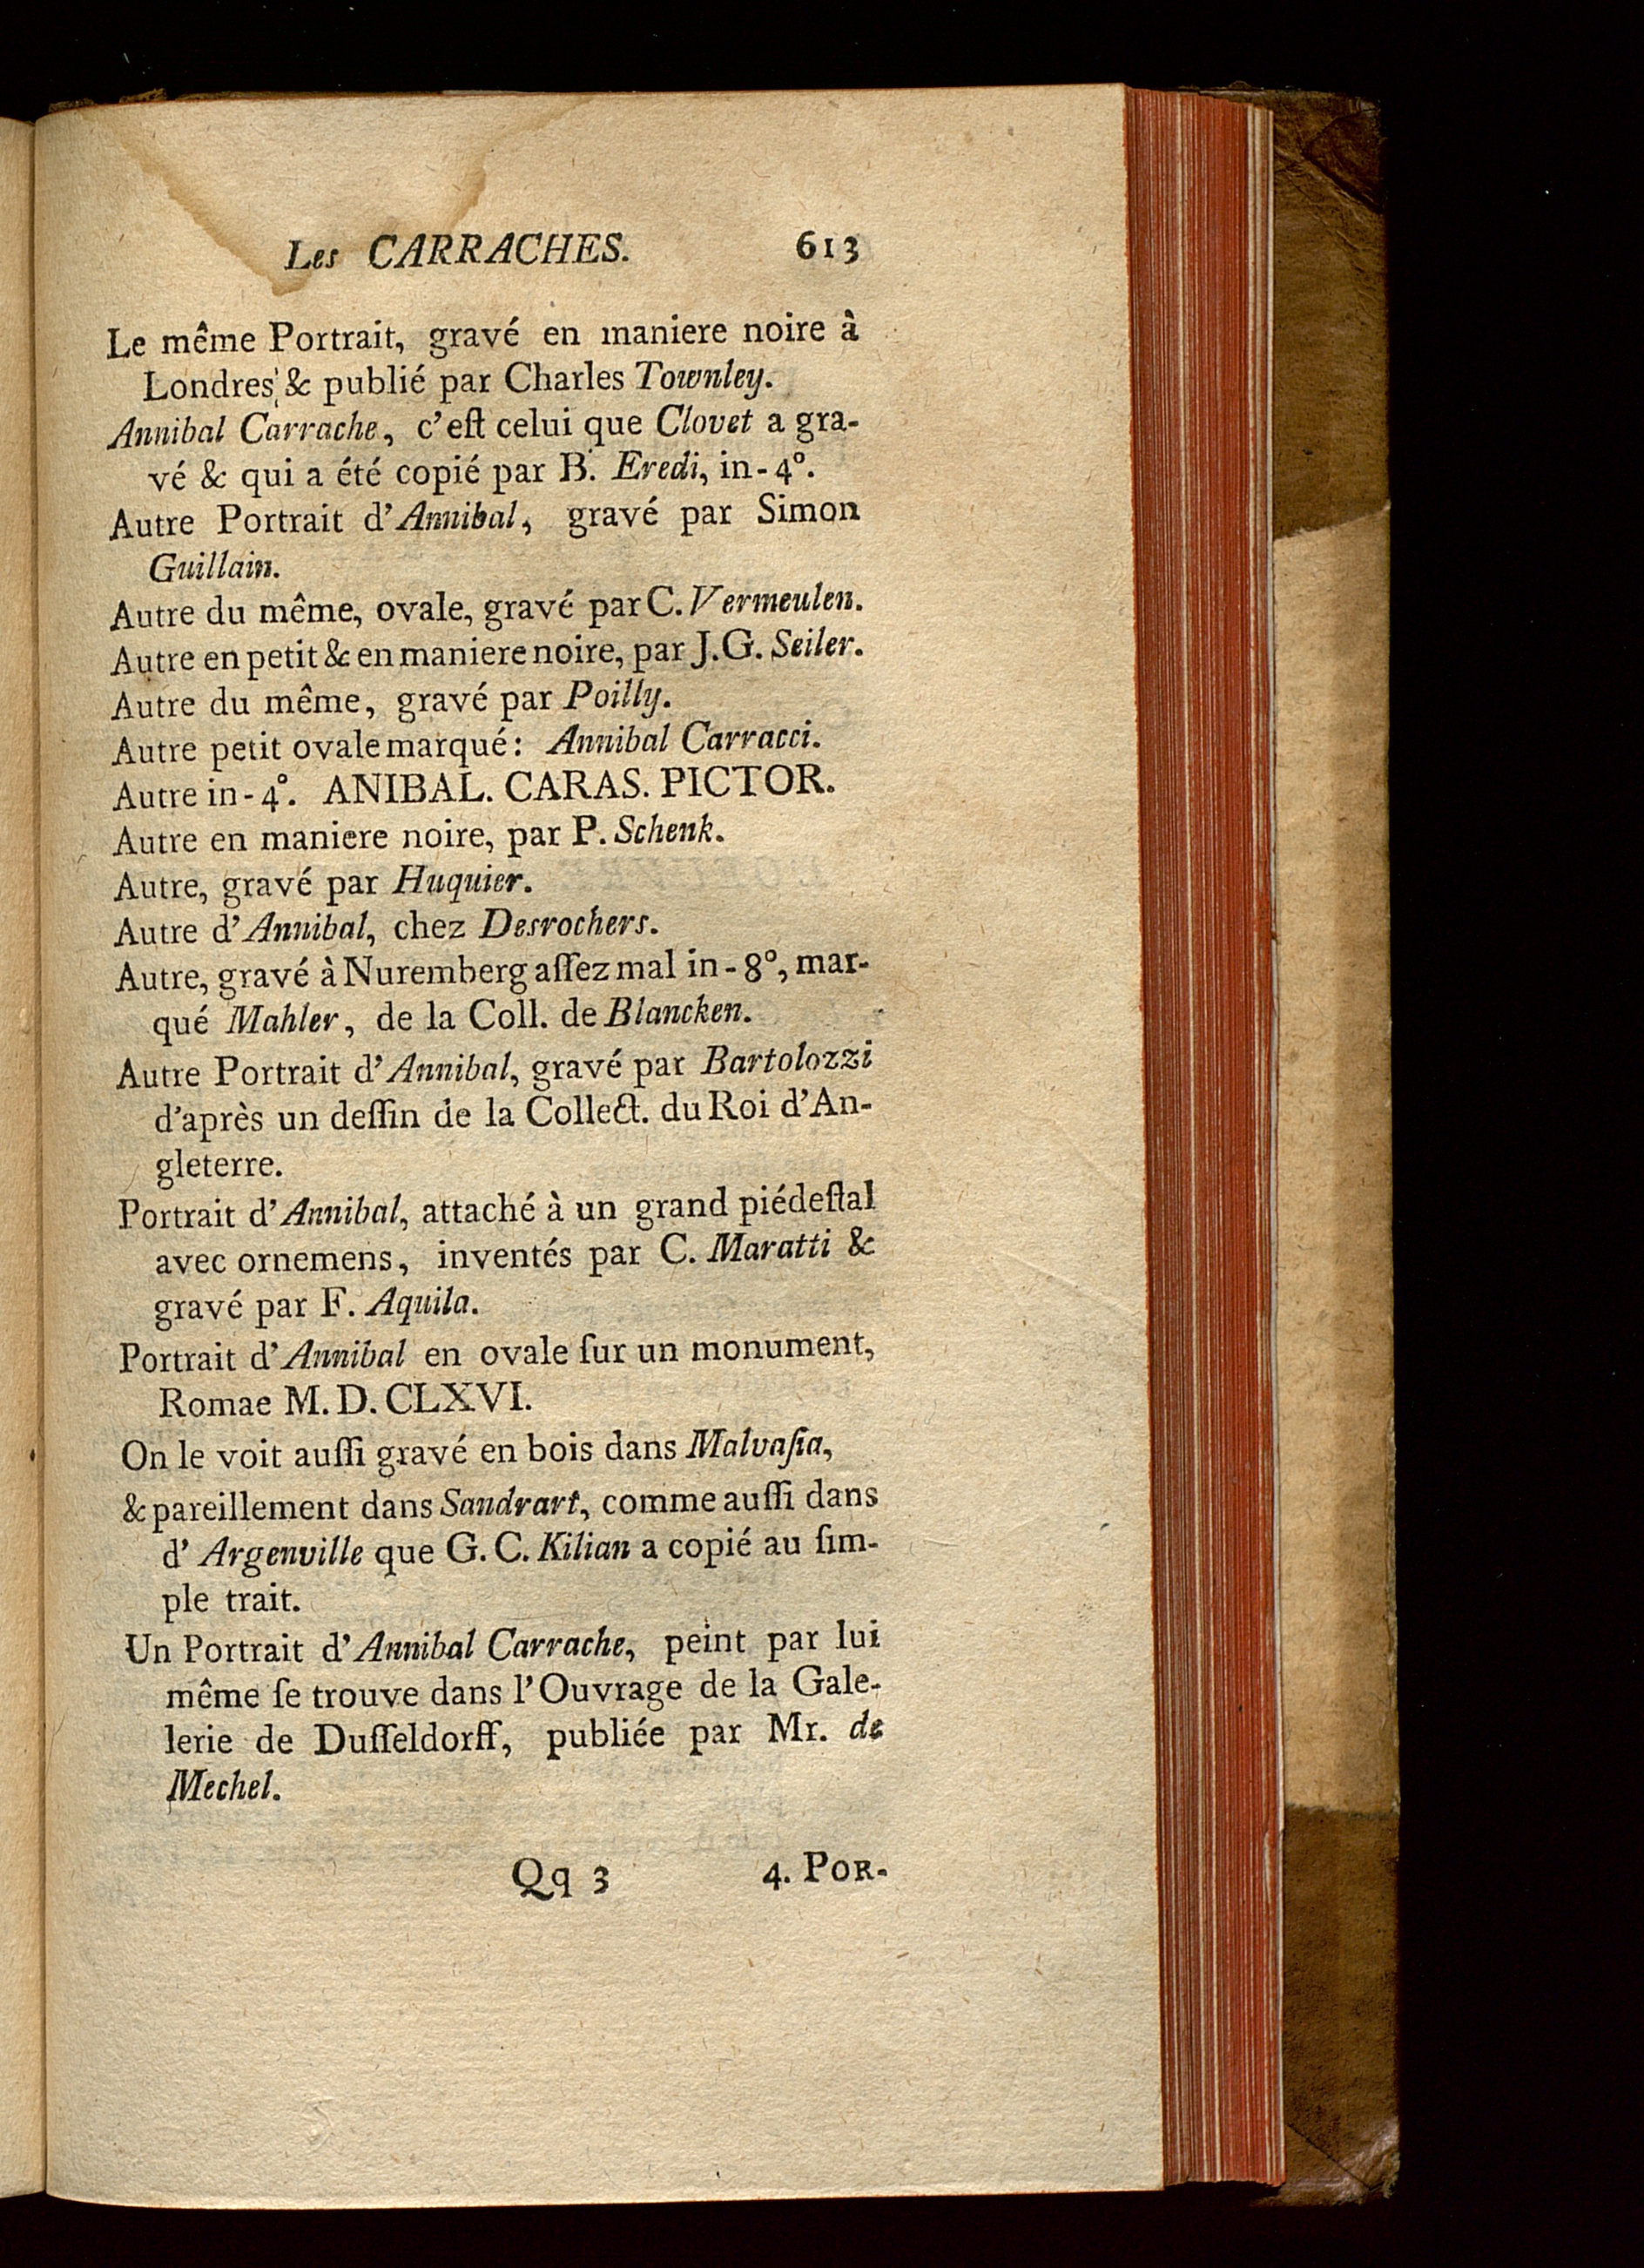 Les CARRACHES. 613
Le même Portrait, gravé en maniere noire à
Londres & publié par Charles Townley.
Annibal Carrache, c'eſt celui que Clovet a gra-
vé & qui a été copié par B. Eredi, in-4°.
Autre Portrait d'Annibal, gravé par Simon
Guillain.
Autre du même, ovale, gravé par C. Vermeulen.
Autre en petit & en maniere noire, par J. G. Seiler.
Autre du même, gravé par Poilly.
Autre petit ovale marqué: Annibal Carracci.
Autre in-4°. ANIBAL. CARAS. PICTOR.
Autre en maniere noire, par P. Schenk.
Autre, gravé par Huquier.
Autre d'Annibal, chez Desrochers.
Autre, gravé à Nuremberg aſſez mal in-8°, mar-
qué Mahler, de la Coll. de Blancken.
Autre Portrait d'Annibal, gravé par Bartolozzi
d'après un deſſin de la Collect. du Roi d'An-
gleterre.
Portrait d'Annibal, attaché à un grand piédeſtal
avec ornemens, inventés par C. Maratti &
gravé par F. Aquila.
Portrait d'Annibal en ovale ſur un monument,
Romae M. D. CLXVI.
On le voit auſſi gravé en bois dans Malvaſia,
& pareillement dans Sandrart, comme auſſi dans
d'Argenville que G. C. Kilian a copié au ſim-
ple trait.
Un Portrait d'Annibal Carrache, peint par lui
même ſe trouve dans l'Ouvrage de la Gale-
lerie de Duſſeldorff, publiée par Mr. de
Mechel.
Qq 3 4. POR-